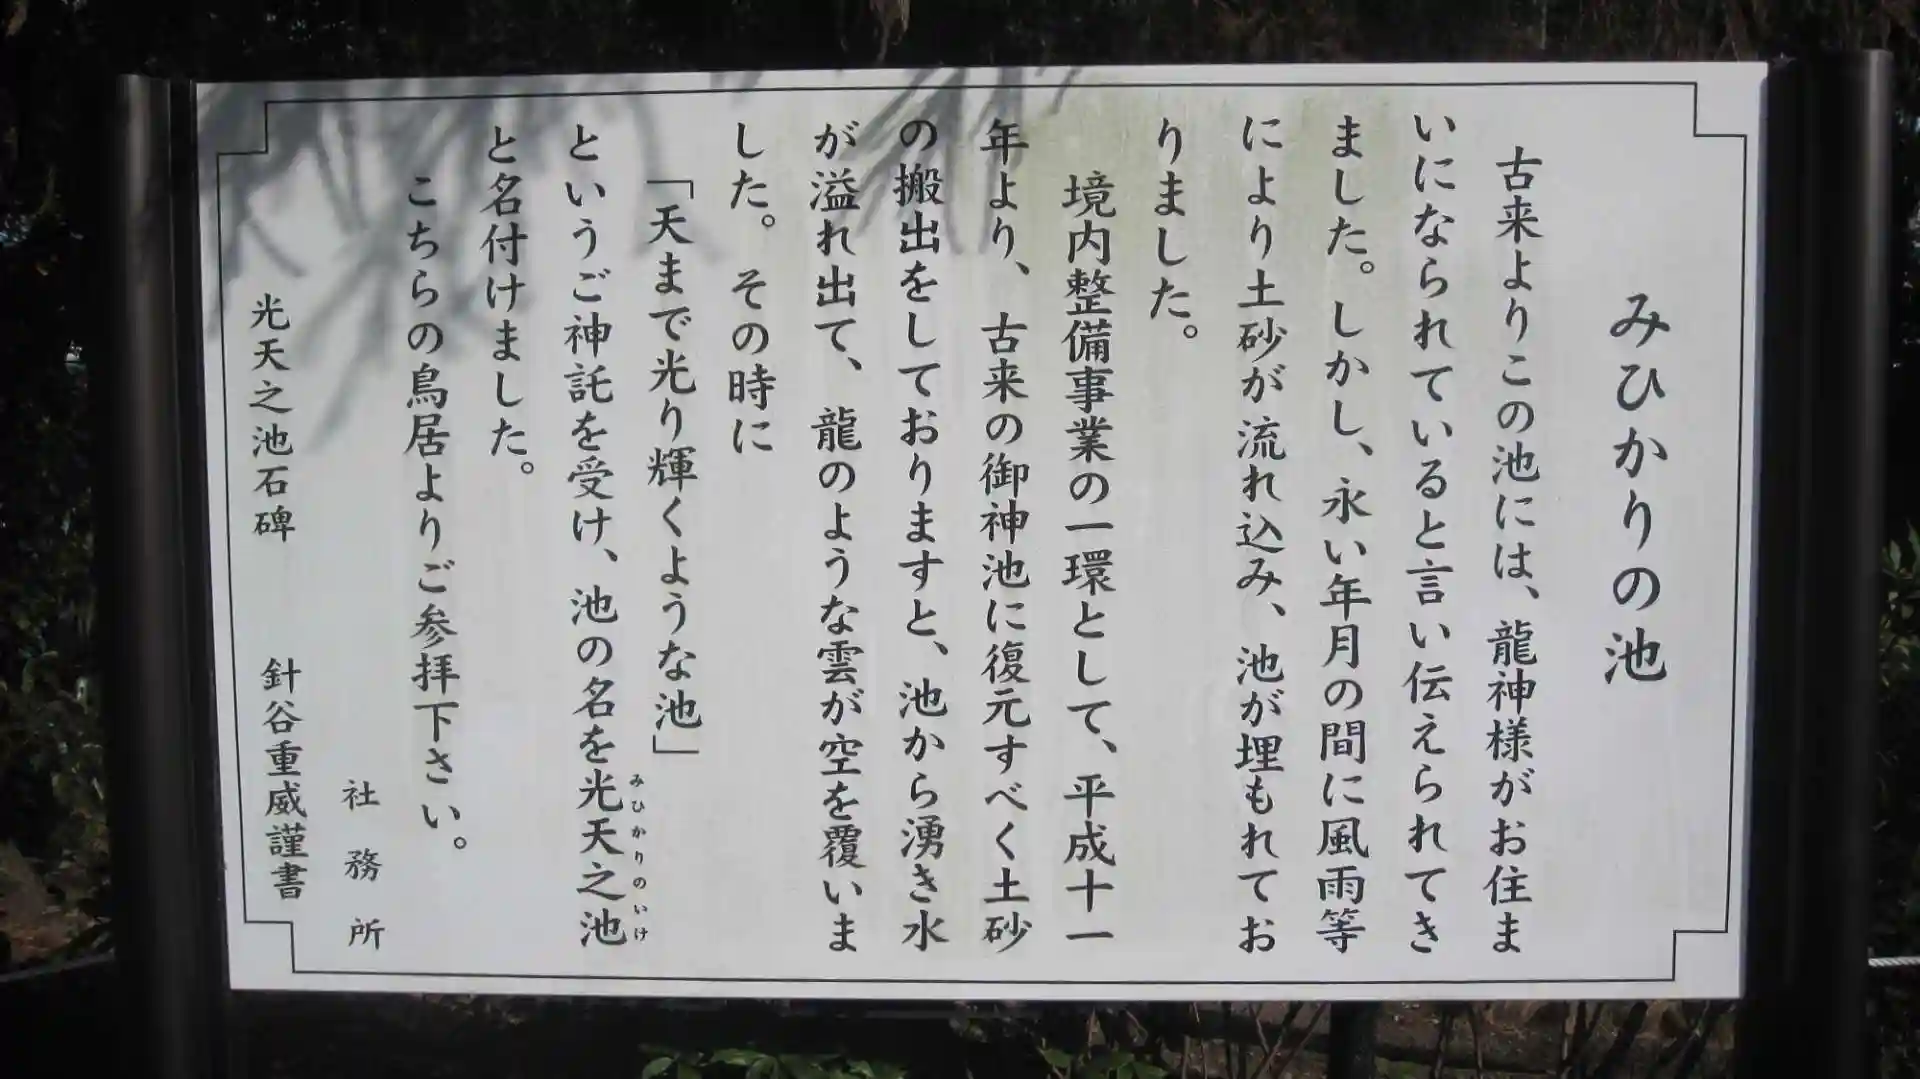 みひかりの池
古来よりこの池には、龍神様がお住ま
いになられていると言い伝えられてき
ました。しかし、永い年月の間に風雨等
により土砂が流れ込み、池が埋もれてお
りました。
境内整備事業の一環として、平成十一
年より、古来の御神池に復元すべく土砂
の搬出をしておりますと、池から湧き水
が溢れ出て、龍のような雲が空を覆いま
した。その時に
「天まで光り輝くような池」
というご神託を受け、池の名を光天之池
みひかりのいけ
と名付けました。
こちらの鳥居よりご参拝下さい。
社務所
光天之池石碑 針谷重威謹書